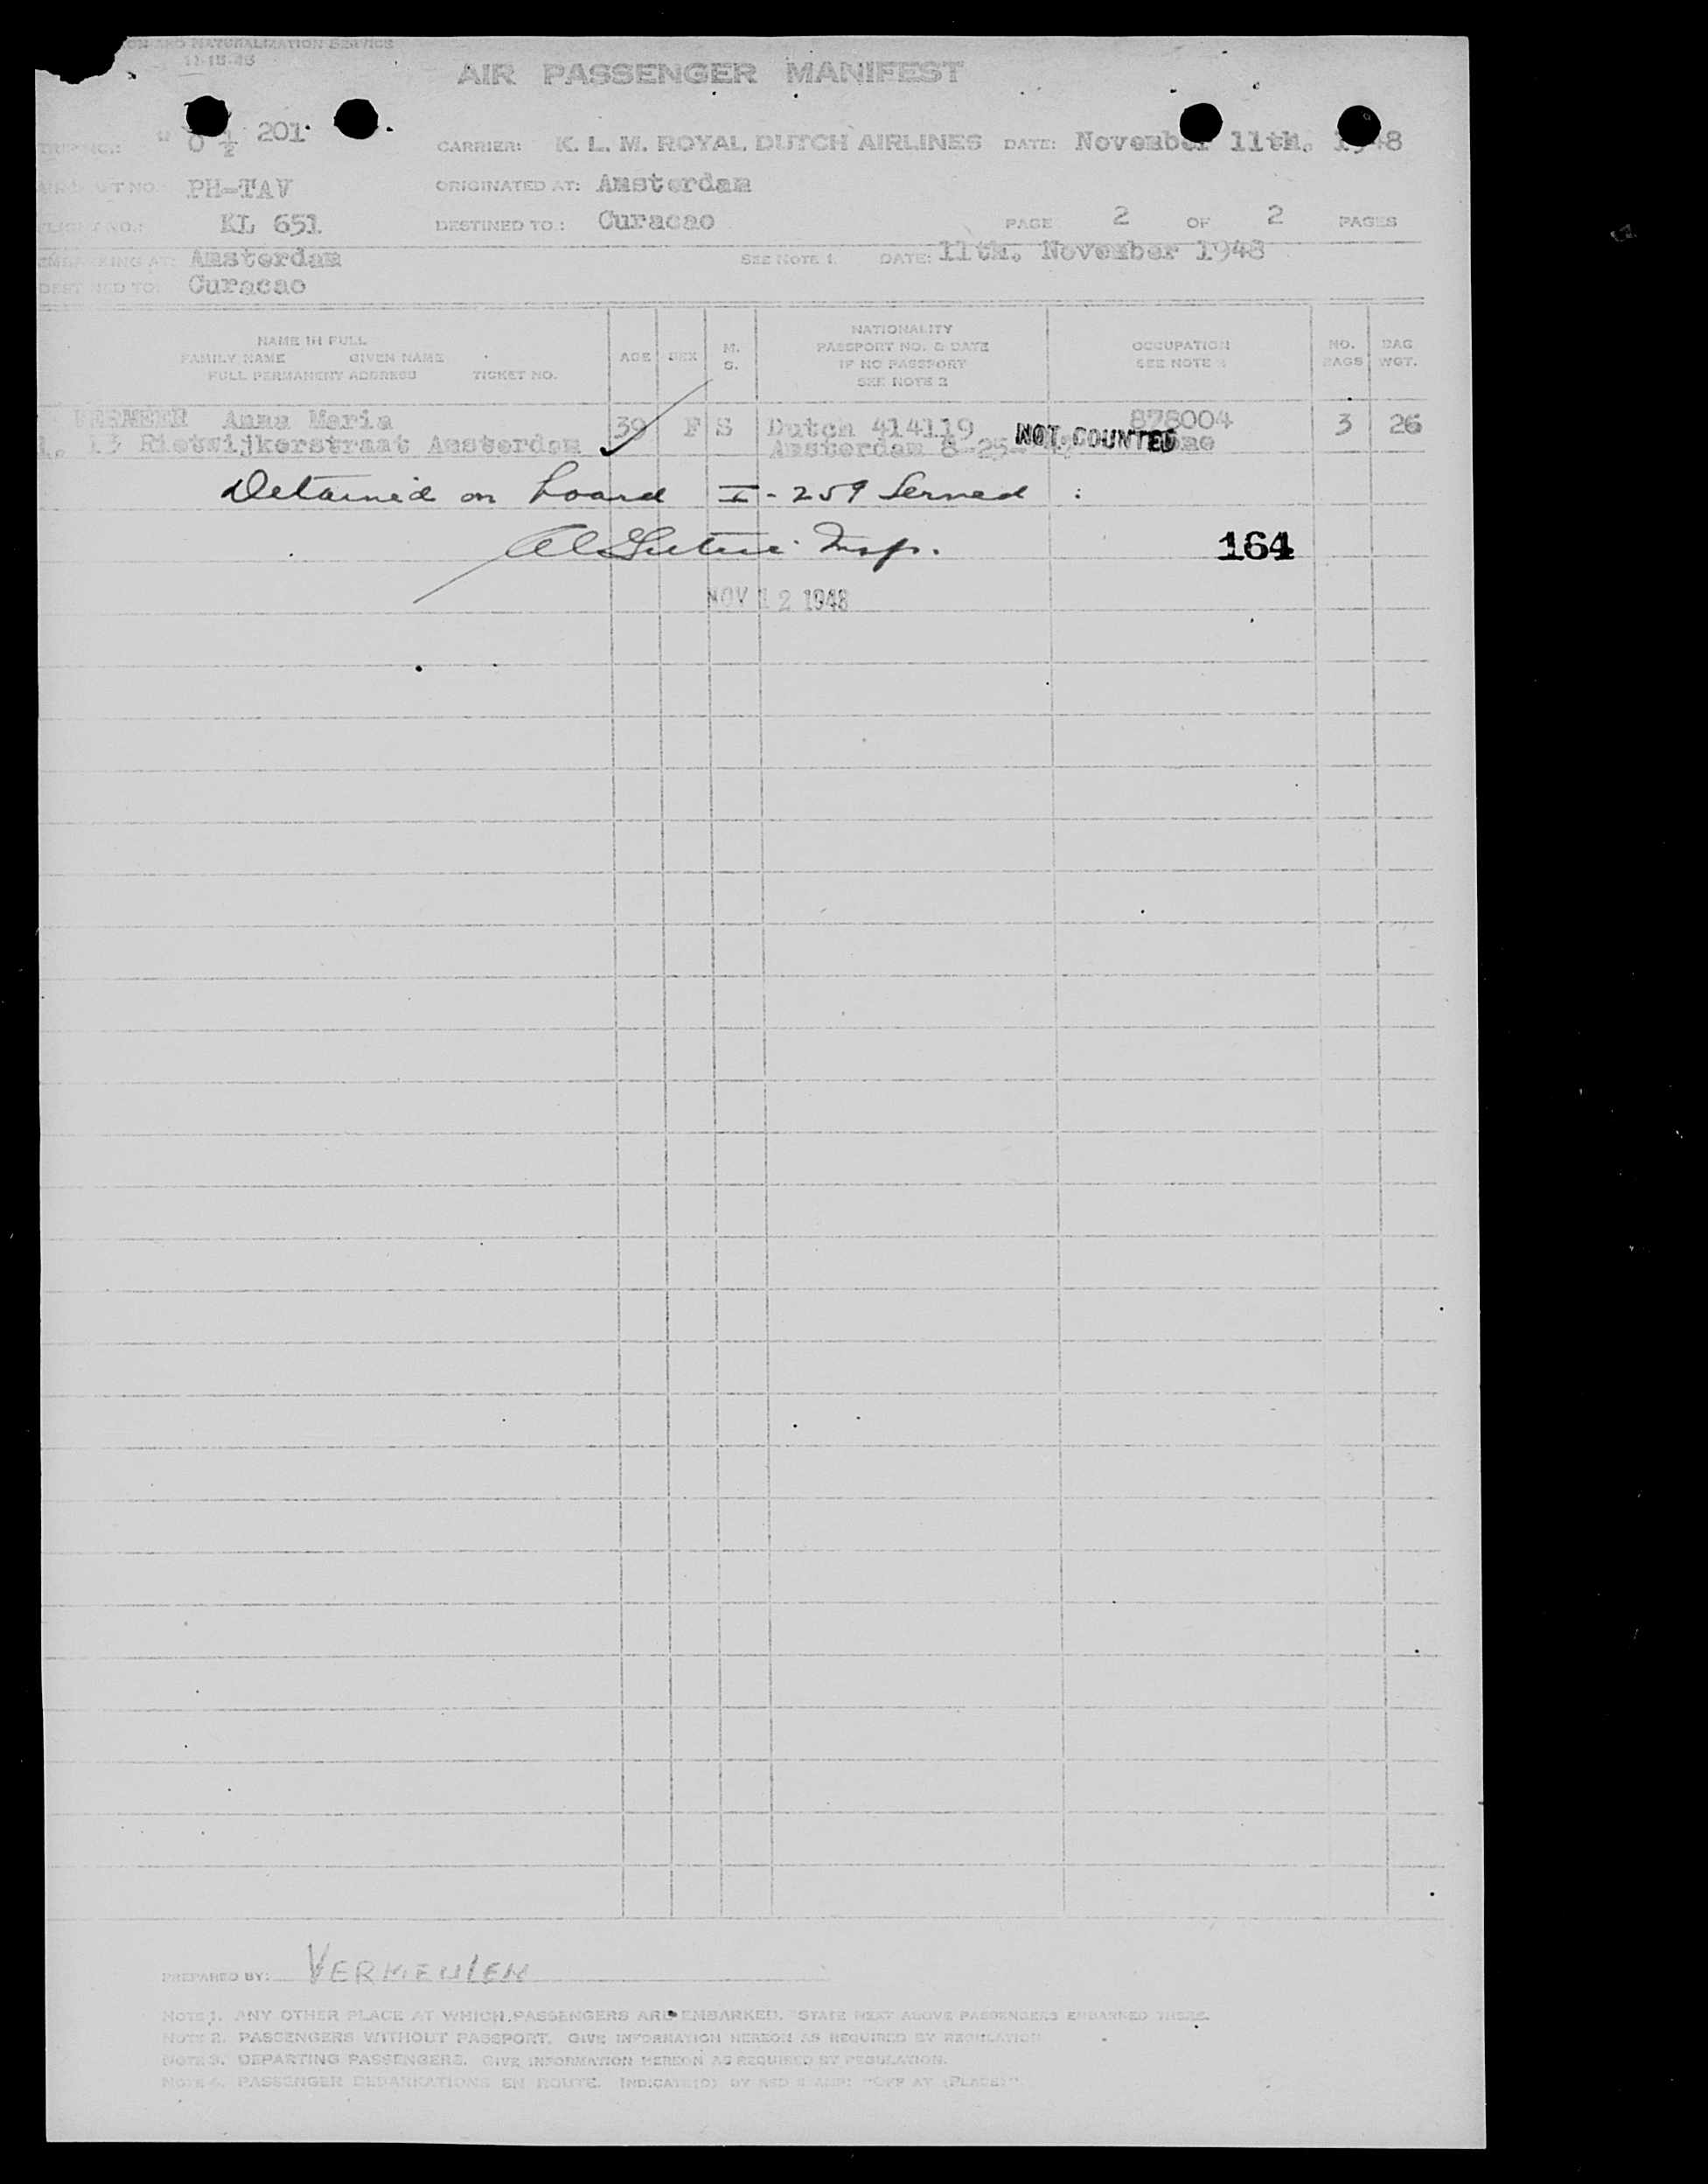 AND NATURALIZATION SERVICE
11-15-46
AIR PASSENGER MANIFEST
201
CARRIER: K. L. M. ROYAL DUTCH AIRLINES DATE: November 11th. 1948
PH-TAV ORIGINATED AT: Amsterdam
KL 651 DESTINED TO: Curacao PAGE 2 OF 2 PAGES
EMBARKING AT: Amsterdam SEE NOTE 1. DATE: 11th. November 1948
DESTINED TO: Curacao
NAME IN FULL
FAMILY NAME GIVEN NAME
FULL PERMANENT ADDRESS TICKET NO.
AGE SEX M. S.
NATIONALITY
PASSPORT NO. & DATE
IF NO PASSPORT
SEE NOTE 2
OCCUPATION
SEE NOTE
NO. BAGS
BAG WGT.
Anna Maria 39 F S Dutch 414119 878004 3 26
1. 13 Rietwijkerstraat Amsterdam Amsterdam 8-25- NOT COUNTED
Detained on board I-259 Served :
Insp. 164
NOV 12 1948
PREPARED BY: VERMEULEN
NOTE 1. ANY OTHER PLACE AT WHICH PASSENGERS ARE EMBARKED. STATE NEXT ABOVE PASSENGERS EMBARKED THERE.
NOTE 2. PASSENGERS WITHOUT PASSPORT. GIVE INFORMATION HEREON AS REQUIRED BY REGULATION
NOTE 3. DEPARTING PASSENGERS. GIVE INFORMATION HEREON AS REQUIRED BY REGULATION.
NOTE 4. PASSENGER DEBARKATIONS EN ROUTE. INDICATE(D) BY RED STAMP: "OFF AT (PLACE)"